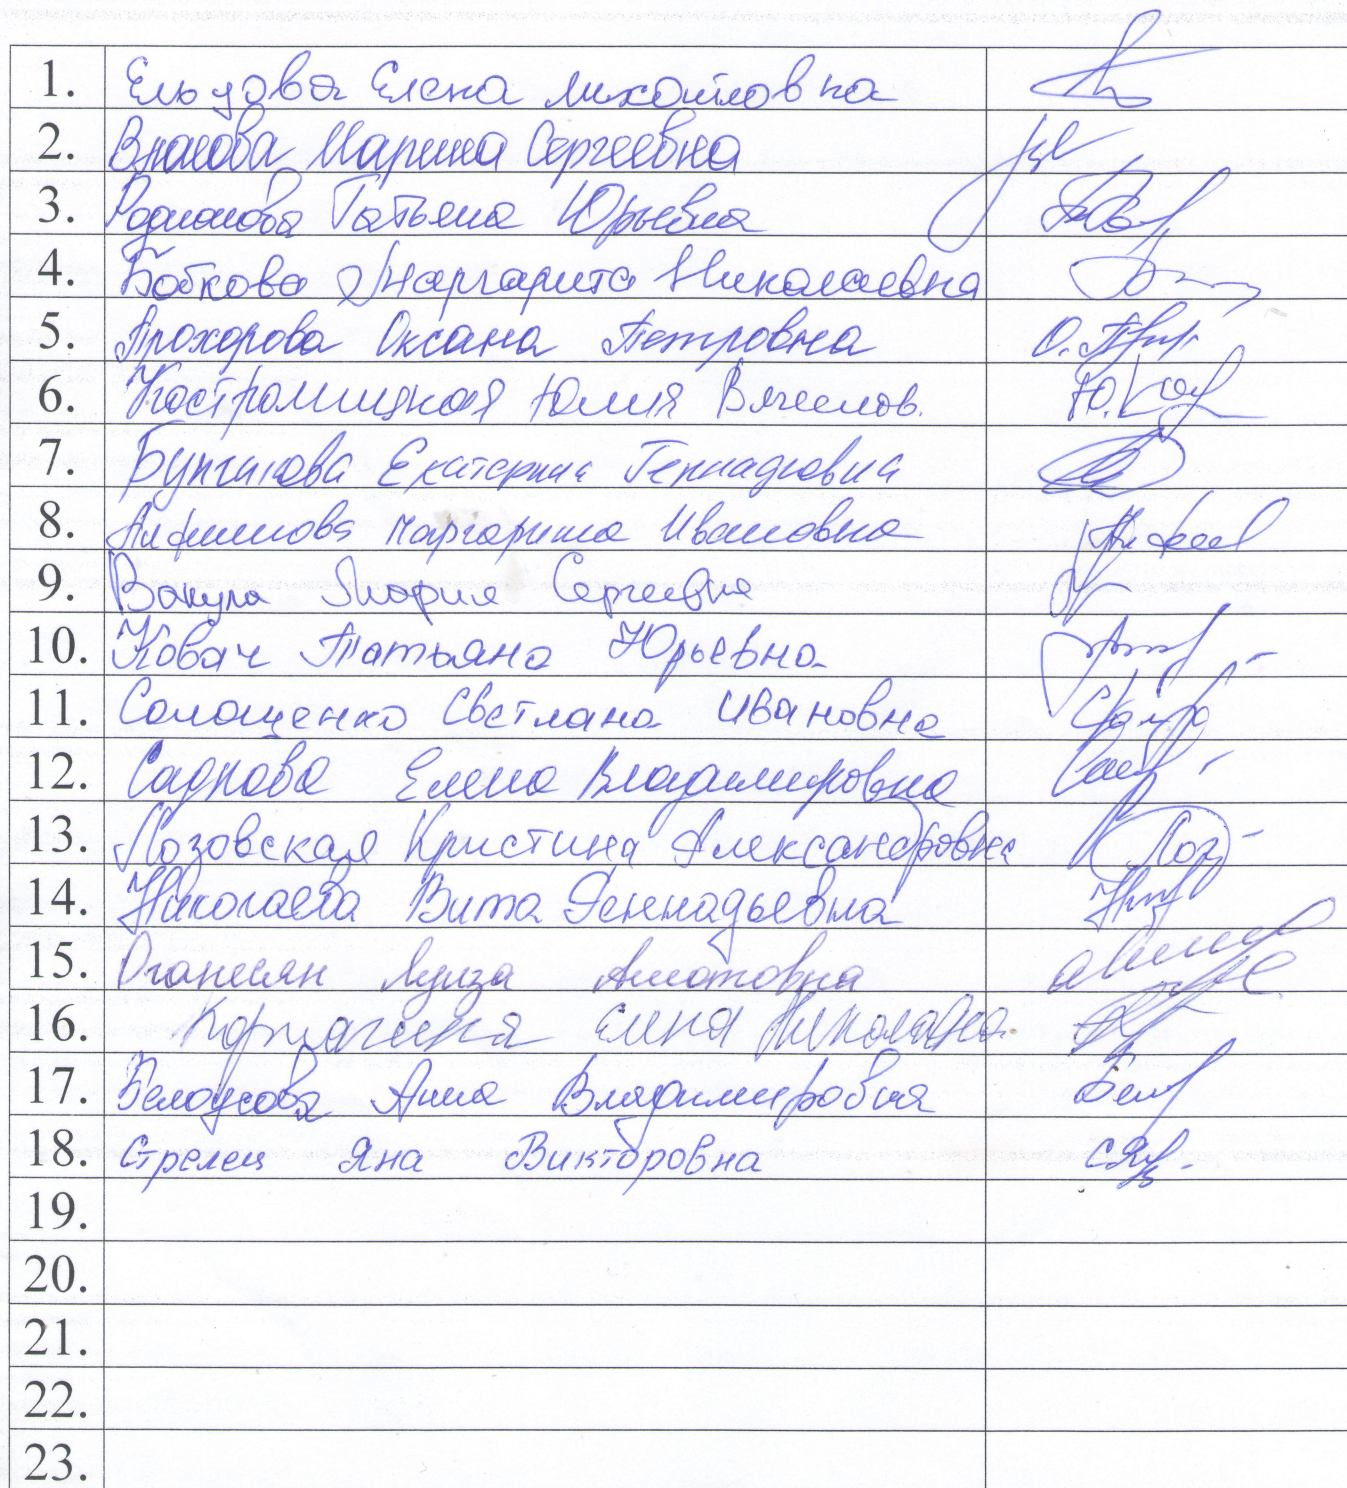 1. Ельцова Елена Михайловна
2. Марина Сергеевна
3. Родионова Татьяна Юрьевна
4. Бобкова Маргарита Николаевна
5. Прохорова Оксана Петровна О. Пр
6. Костромицкая Юлия Вячеслов. Ю. Ко
7. Екатерина Геннадиевна
8. Алфимова Маргарита Ивановна
9. Вакула Мария Сергеевна
10. Ковач Татьяна Юрьевна
11. Солощенко Светлана Ивановна
12. Елена Владимировна
13. Лозовская Кристина Александровна Лоз
14. Николаева Вита Геннадьевна
15. Оганесян Луиза
16. Елена Николаевна
17. Белоусова Анна Владимировна Бел
18. Стрелец Яна Викторовна
19.
20.
21.
22.
23.